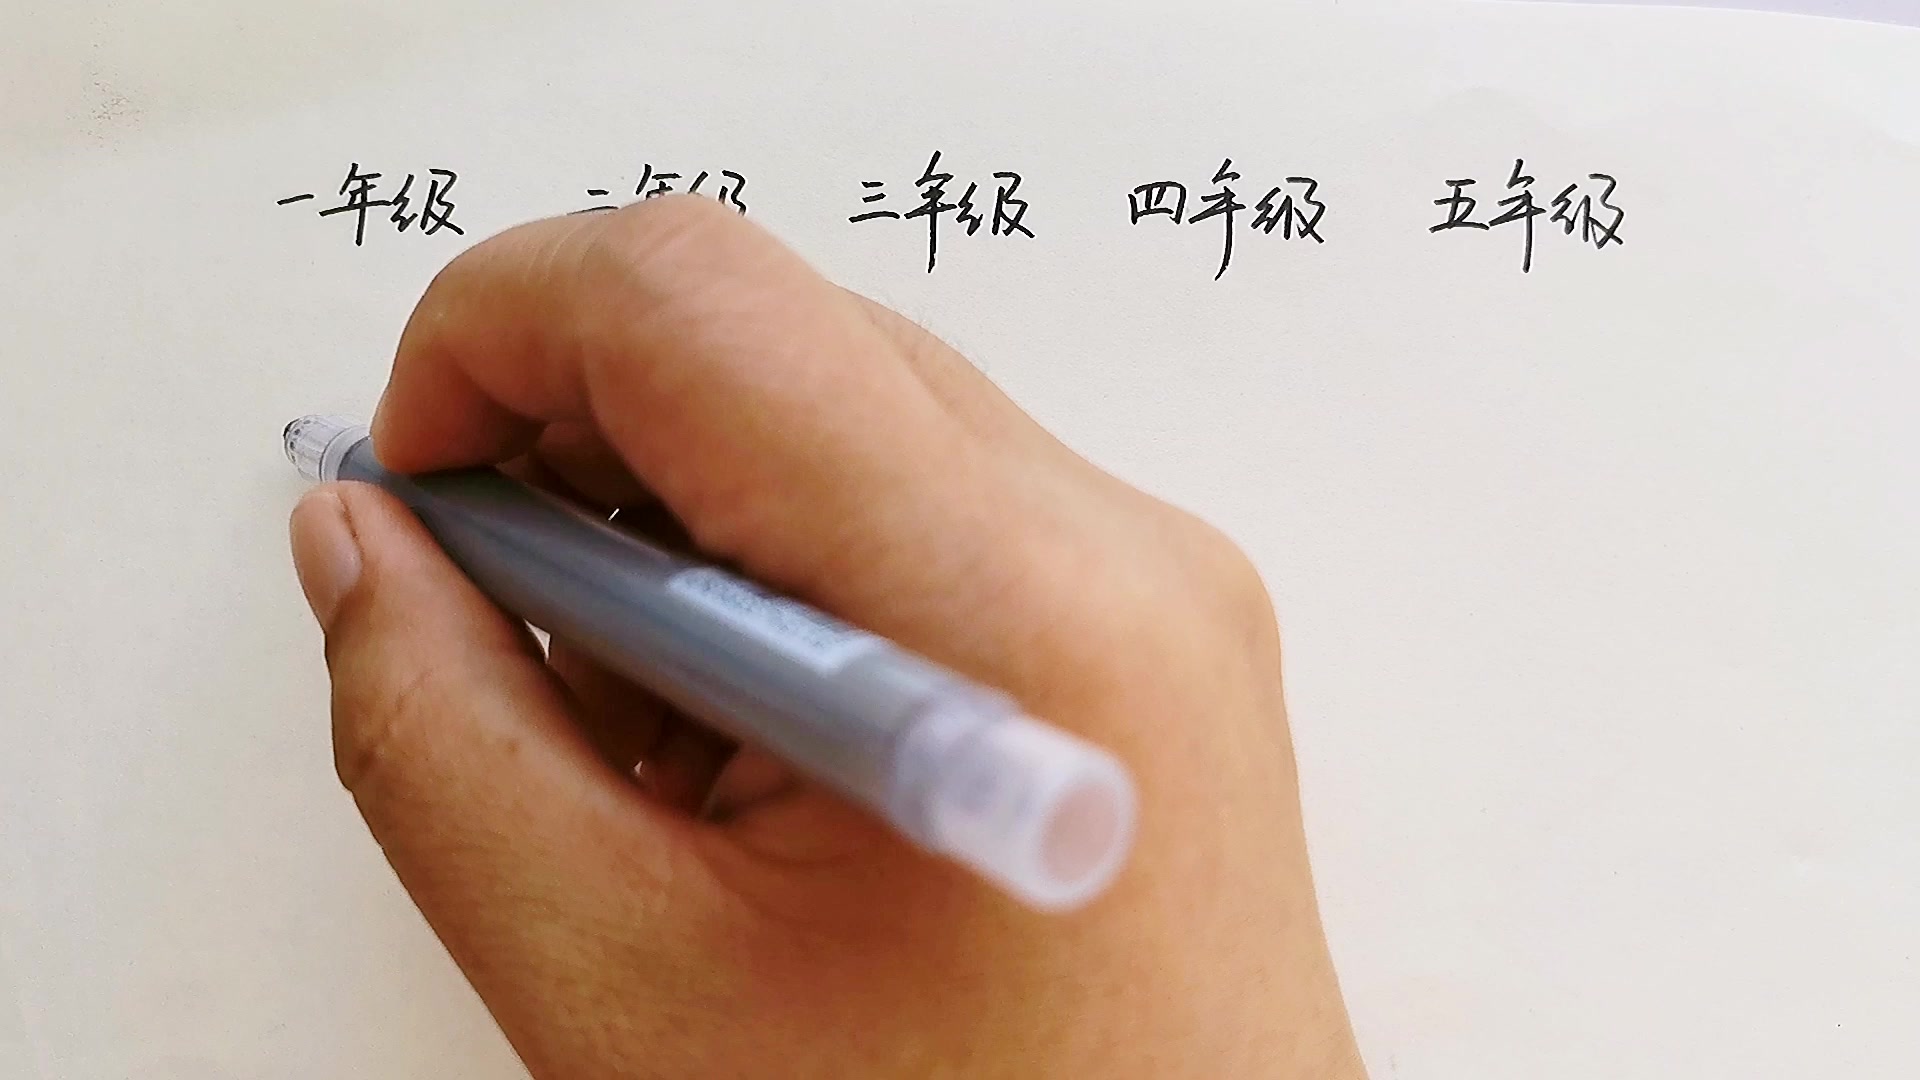 一年级 二年级 三年级 四年级 五年级